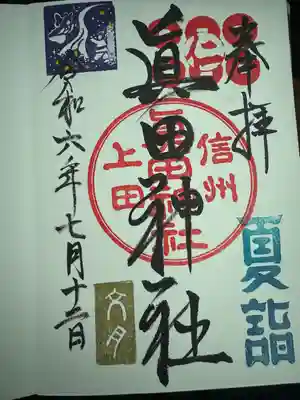 奉拝
夏詣
眞田神社
信州
上田
眞田神社
令和六年七月十二日
文月